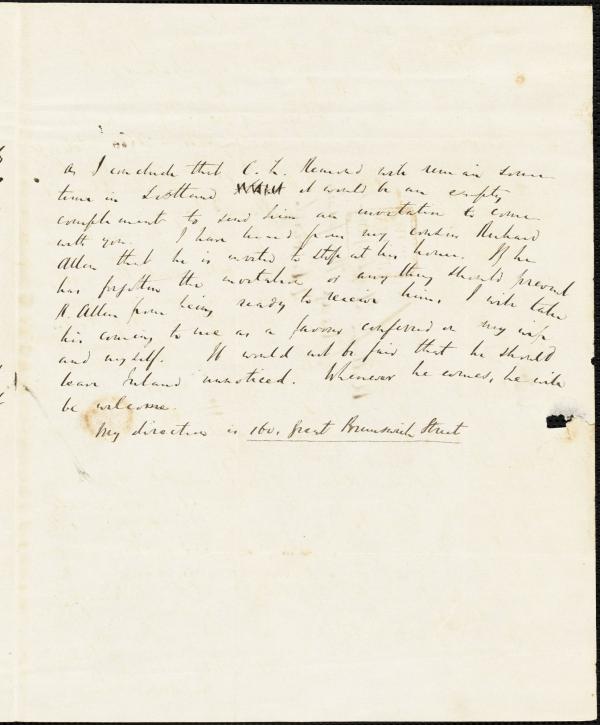 As I conclude that C. L. Remond will remain some
time in Scotland it would be an empty
compliment to send him an invitation to come
with you. I have heard from my cousin Richard
Allen that he is invited to stop at his house. If he
has forgotten the invitation or anything should prevent
R. Allen from being ready to receive him, I will take
his coming to me as a favour conferred on my wife
and myself. It would not be fair that he should
leave Ireland unnoticed. Whenever he comes, he will
be welcome.
My direction is 160, Great Brunswick Street